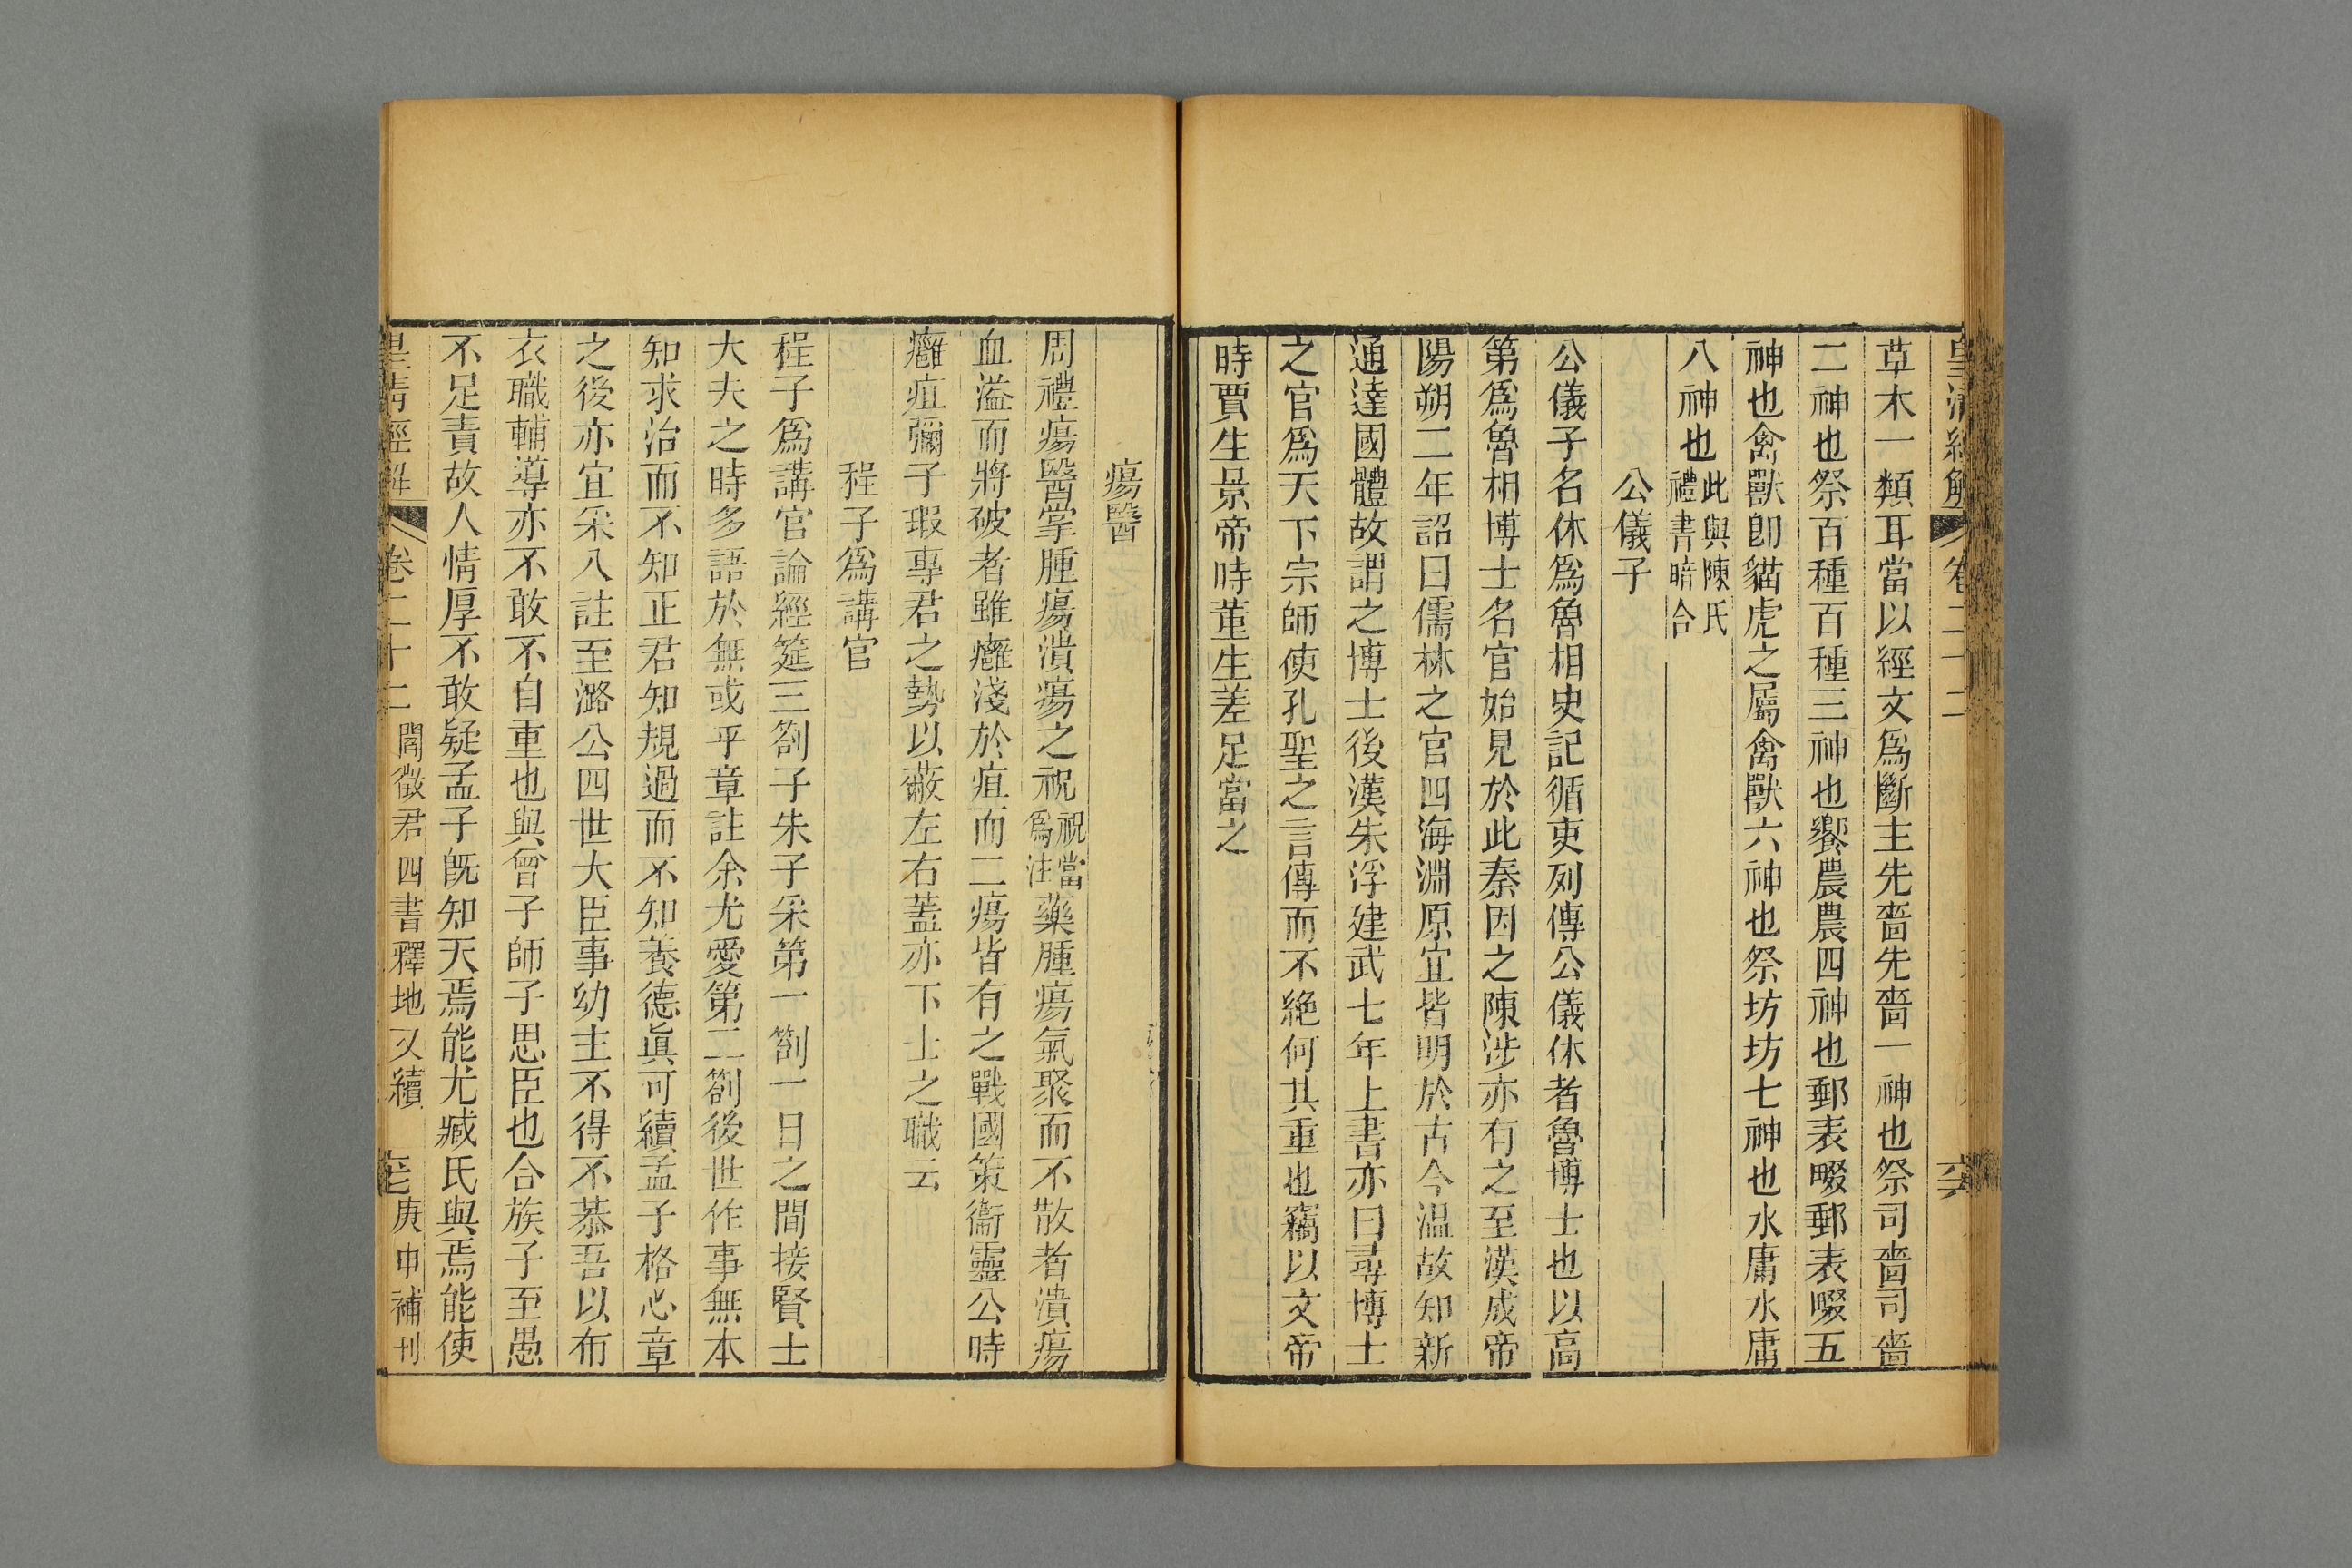 皇淸經解 卷二十二 六六
草木一類耳當以經文爲斷主先嗇先嗇一神也祭司嗇司嗇
二神也祭百種百種三神也饗農農四神也郵表畷郵表畷五
神也禽獸卽貓虎之屬禽獸六神也祭坊坊七神也水庸水庸
八神也此與陳氏禮書暗合
公儀子
公儀子名休爲魯相史記循吏列傳公儀休者魯博士也以高
第爲魯相博士名官始見於此秦因之陳涉亦有之至漢成帝
陽朔二年詔曰儒林之官四海淵原宜皆明於古今温故知新
通達國體故謂之博士後漢朱浮建武七年上書亦曰尋博士
之官爲天下宗師使孔聖之言傳而不絶何其重也竊以文帝
時賈生景帝時董生差足當之
瘍醫
周禮瘍醫掌腫瘍潰瘍之祝祝當爲注藥腫瘍氣聚而不散者潰瘍
血溢而將破者雖癰淺於疽而二瘍皆有之戰國策衞靈公時
癰疽彌子瑕專君之勢以蔽左右蓋亦下士之職云
程子爲講官
程子爲講官論經筵三劄子朱子采第一劄一日之間接賢士
大夫之時多語於無或乎章註余尤愛第二劄後世作事無本
知求治而不知正君知規過而不知養德眞可續孟子格心章
之後亦宜采入註至潞公四世大臣事幼主不得不恭吾以布
衣職輔導亦不敢不自重也與曾子師子思臣也合族子至愚
不足責故人情厚不敢疑孟子旣知天焉能尤臧氏與焉能使
皇淸經解 卷二十二 閻徵君四書釋地又續 庚申補刊